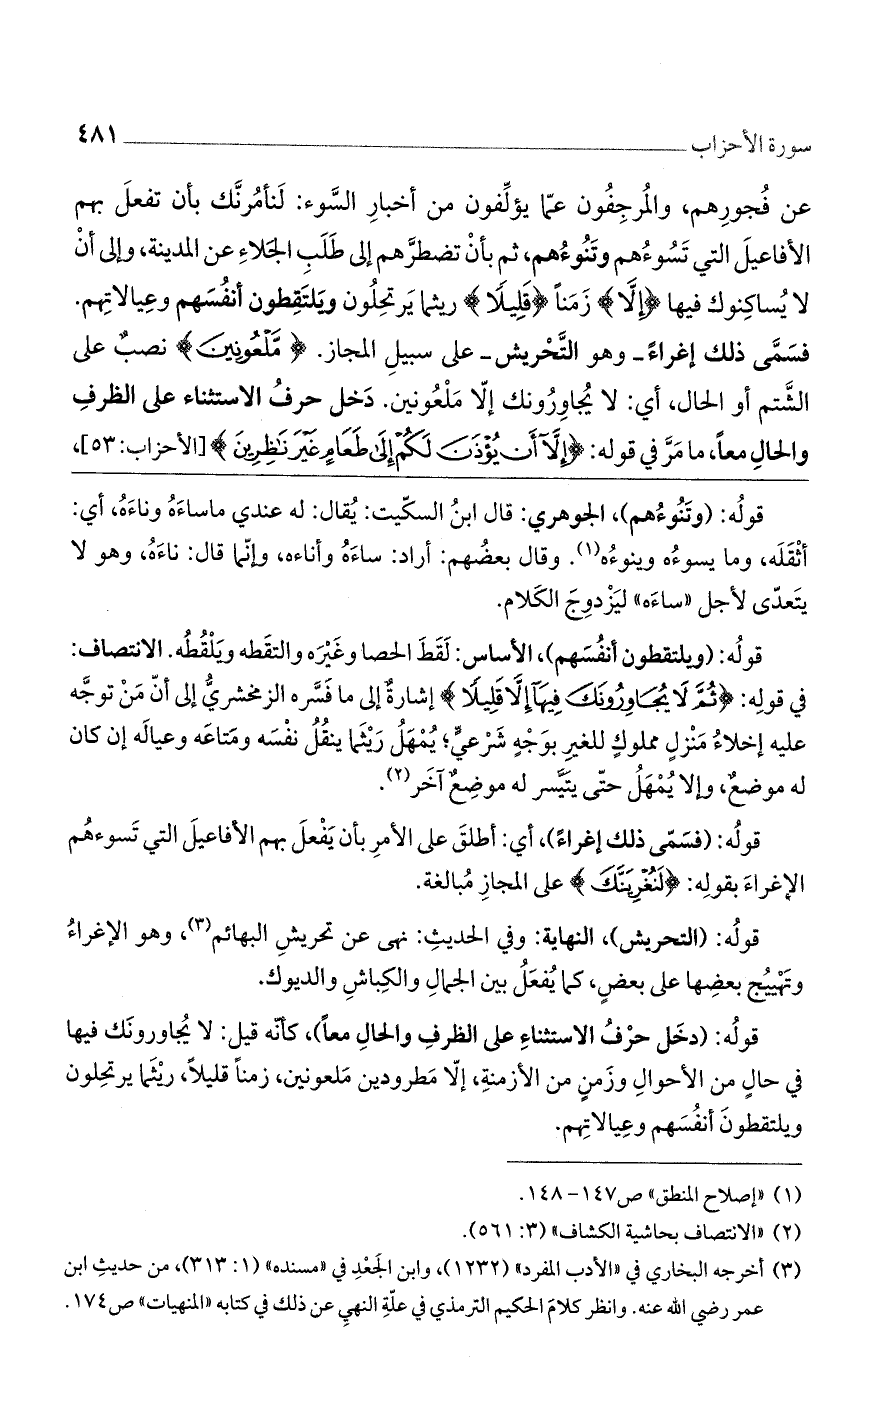 سورة الأحزاب ٤٨١
عن فُجورِهم، والمُرجِفُون عمّا يؤلِّفون من أخبارِ السَّوء: لَنأمُرنَّك بأن تفعلَ بهم
الأفاعيلَ التي تَسُوءُهم وتَنُوءُهم، ثم بأنْ تضطرَّهم إلى طَلَبِ الجَلاءِ عن المدينة، وإلى أنْ
لا يُساكِنوك فيها ﴿إِلَّا﴾ زَمَناً ﴿قَلِيلًا﴾ ريثما يَرتحِلُون ويَلتَقِطون أنفُسَهم وعِيالاتِهم.
فسَمَّى ذلك إغراءً - وهو التَّحْريش - على سبيلِ المجاز. ﴿مَّلْعُونِينَ﴾ نصبٌ على
الشَّتم أو الحال، أي: لا يُجاوِرُونك إلّا مَلْعُونين. دَخل حرفُ الاستثناء على الظرفِ
والحالِ معاً، ما مَرَّ في قوله: ﴿إِلَّآ أَن يُؤْذَنَ لَكُمْ إِلَى طَعَامٍ غَيْرَ نَاظِرِينَ﴾ [الأحزاب: ٥٣]،
قولُه: (وتَنُوءُهم)، الجوهري: قال ابنُ السكّيت: يُقال: له عندي ماساءَهُ وناءَهُ، أي:
أثْقَلَه، وما يسوءُه وينوءُه(١). وقال بعضُهم: أراد: ساءَهُ وأناءه، وإنّما قال: ناءَهُ، وهو لا
يتَعدّى لأجل «ساءَه» ليَزْدوِجَ الكَلام.
قولُه: (ويلتقطون أنفُسَهم)، الأساس: لَقَطَ الحصا وغَيْرَه والتقَطه ويَلْقُطُه. الانتصاف:
في قولِه: ﴿ثُمَّ لَا يُجَاوِرُونَكَ فِيهَآ إِلَّا قَلِيلًا﴾ إشارةٌ إلى ما فَسَّره الزمخشريُّ إلى أنّ مَنْ توجَّه
عليه إخلاءُ مَنْزلٍ مملوكٍ للغيرِ بوَجْهٍ شَرْعيٍّ؛ يُمْهَلُ رَيْثَما ينقُلُ نفْسَه ومَتاعَه وعيالَه إن كان
له موضعٌ، وإلا يُمْهَلُ حتّى يتَيَّسر له موضِعٌ آخَر(٢).
قولُه: (فسَمّى ذلك إغراءً)، أي: أطلقَ على الأمرِ بأن يَفْعلَ بهم الأفاعيلَ التي تَسوءهُم
الإغراءَ بقولِه: ﴿لَنُغْرِيَنَّكَ﴾ على المجازِ مُبالغة.
قولُه: (التحريش)، النهاية: وفي الحديثِ: نهى عن تحريشِ البهائم(٣)، وهو الإغراءُ
وتَهْييُج بعضِها على بعضٍ، كما يُفعَلُ بين الجمالِ والكِباشِ والديوك.
قولُه: (دخَل حرْفُ الاستثناءِ على الظرفِ والحالِ معاً)، كأنّه قيل: لا يُجاورونَك فيها
في حالٍ من الأحوالِ وزَمنٍ من الأزمنةِ، إلّا مَطرودين مَلعونين، زمناً قليلاً، ريْثَما يرتحِلون
ويلتقطونَ أنفُسَهم وعِيالاتِهم.
(١) «إصلاح المنطق» ص١٤٧-١٤٨.
(٢) «الانتصاف بحاشية الكشاف» (٣: ٥٦١).
(٣) أخرجه البخاري في «الأدب المفرد» (١٢٣٢)، وابن الجَعْدِ في «مسنده» (١: ٣١٣)، من حديثِ ابن
عمر رضي الله عنه. وانظر كلامَ الحكيم الترمذي في علّةِ النهيِ عن ذلك في كتابه «المنهيات» ص١٧٤.